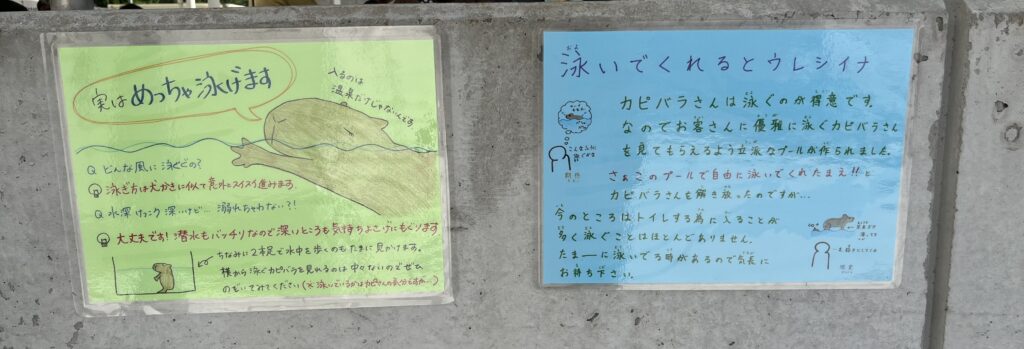 実は めっちゃ泳げます
入るのは
温泉だけじゃないんです
Q どんな風に泳ぐの?
泳ぎ方は犬かきに似て意外とスイスイ進みます。
Q 水深けっこう深いけど… 溺れちゃわない?!
大丈夫です!潜水もバッチリなので深いところも気持ちよさげにもぐります
ちなみに2本足で水中を歩くのもたまに見かけます。
横から泳ぐカピバラを見れるのは中々ないのでぜひ
のぞいてみてください(※泳いでいるかはカピさんの気分しだい…)
泳いでくれるとウレシイナ
カピバラさんは泳ぐのが得意です。
なのでお客さんに優雅に泳ぐカピバラさん
を見てもらえるよう立派なプールが作られました。
さぁこのプールで自由に泳いでくれたまえ!!と
カピバラさんを解き放ったのですが…
今のところはトイレする為に入ることが
多く泳ぐことはほとんどありません。
たまーに泳いでる時があるので気長に
お待ち下さい。
理想
現実